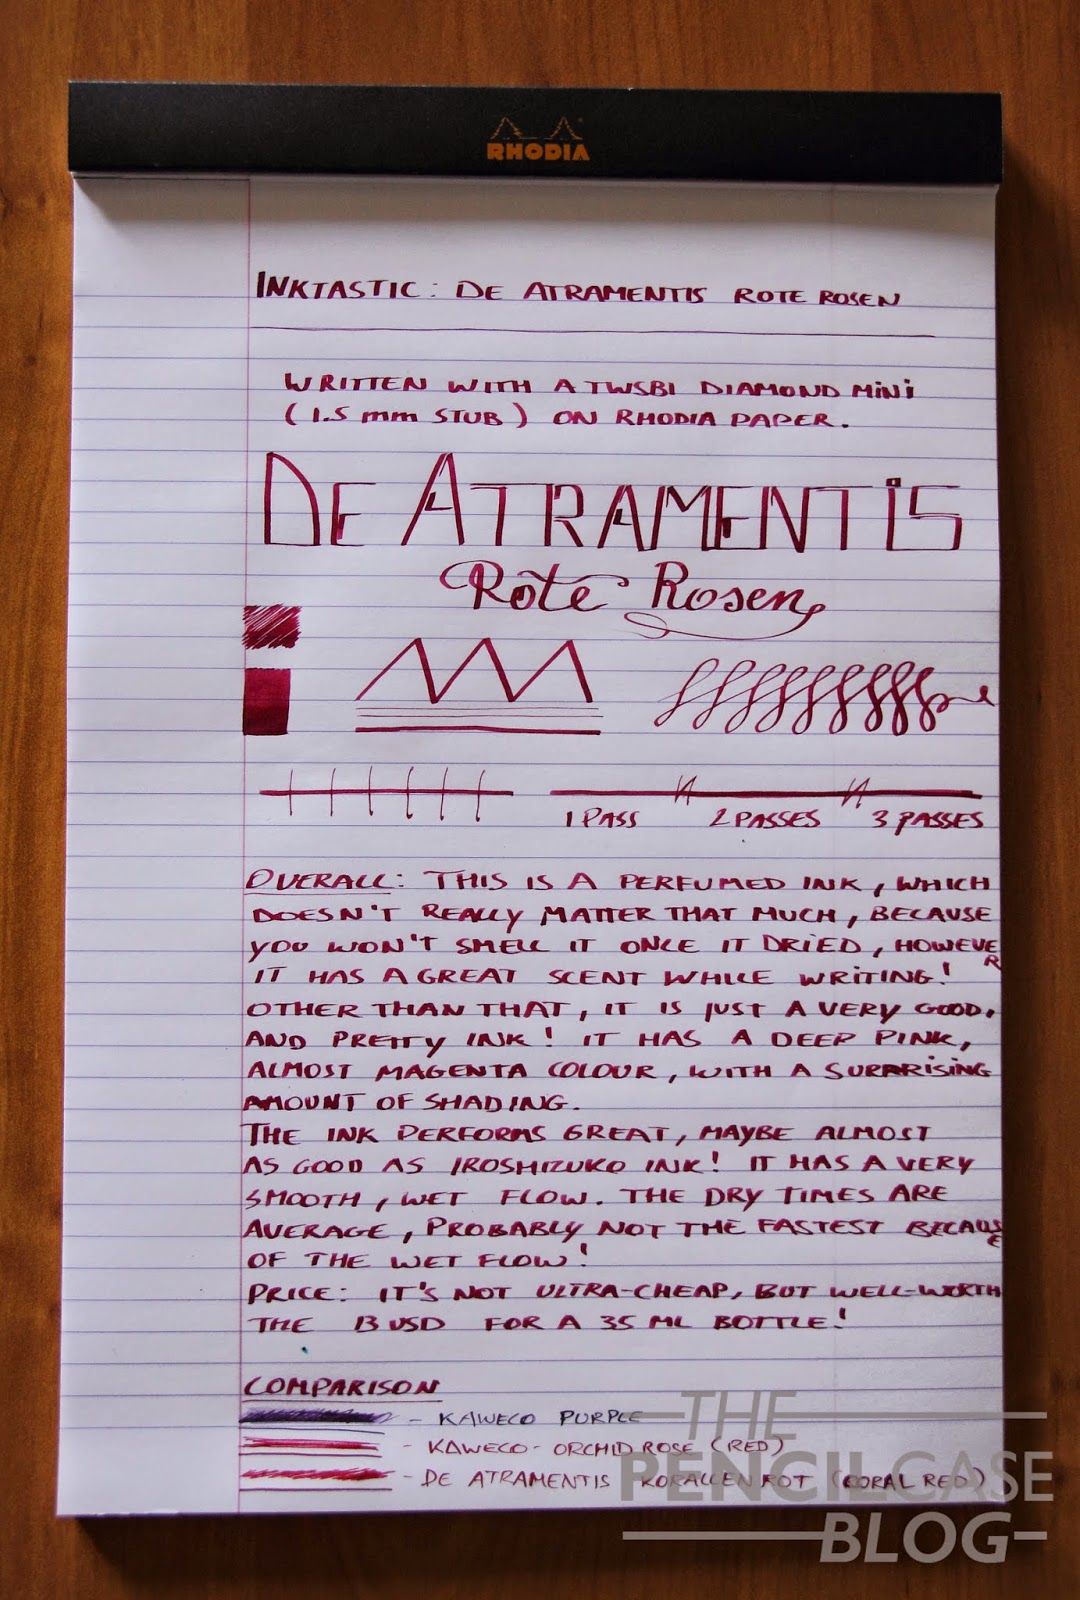 RHODIA
INKTASTIC: DE ATRAMENTIS ROTE ROSEN
WRITTEN WITH A TWSBI DIAMOND MINI
(1.5 mm STUB) ON RHODIA PAPER.
DE ATRAMENTIS
Rote Rosen
1 PASS 2 PASSES 3 PASSES
OVERALL: THIS IS A PERFUMED INK, WHICH
DOESN'T REALLY MATTER THAT MUCH, BECAUSE
YOU WON'T SMELL IT ONCE IT DRIED, HOWEVER
IT HAS A GREAT SCENT WHILE WRITING!
OTHER THAN THAT, IT IS JUST A VERY GOOD,
AND PRETTY INK! IT HAS A DEEP PINK,
ALMOST MAGENTA COLOUR, WITH A SURPRISING
AMOUNT OF SHADING.
THE INK PERFORMS GREAT, MAYBE ALMOST
AS GOOD AS IROSHIZUKO INK! IT HAS A VERY
SMOOTH, WET FLOW. THE DRY TIMES ARE
AVERAGE, PROBABLY NOT THE FASTEST BECAUSE
OF THE WET FLOW!
PRICE: IT'S NOT ULTRA-CHEAP, BUT WELL-WORTH
THE 13 USD FOR A 35 ML BOTTLE!
COMPARISON
- KAWECO PURPLE
- KAWECO - ORCHID ROSE (RED)
- DE ATRAMENTIS KORALLEN ROT (CORAL RED)
THE
PENCILCASE
BLOG